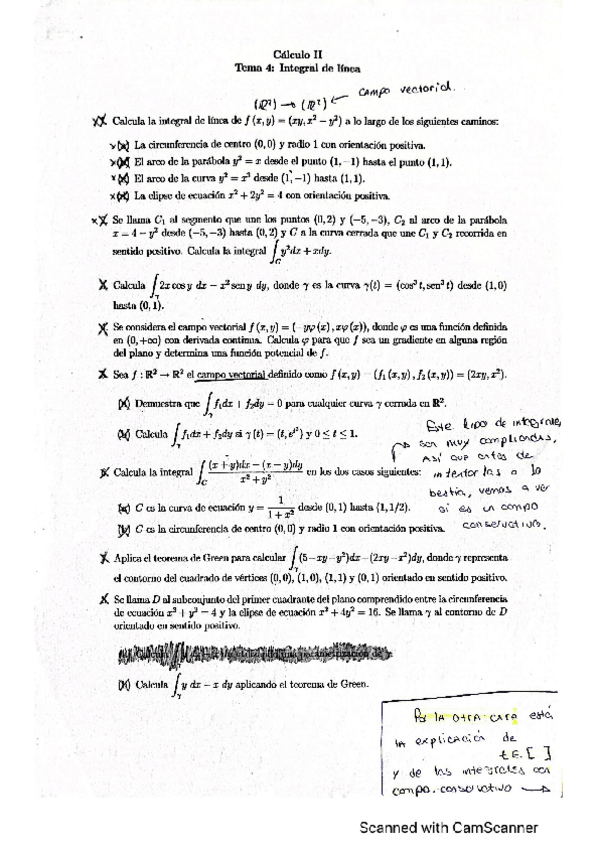 Cálculo II
Tema 4: Integral de línea
(ℝ²) → (ℝ²) ← campo vectorial.
Calcula la integral de línea de f (x, y) = (xy, x² − y²) a lo largo de los siguientes caminos:
(a) La circunferencia de centro (0, 0) y radio 1 con orientación positiva.
El arco de la parábola y² = x desde el punto (1, −1) hasta el punto (1, 1).
El arco de la curva y² = x³ desde (1, −1) hasta (1, 1).
La elipse de ecuación x² + 2y² = 4 con orientación positiva.
Se llama C₁ al segmento que une los puntos (0, 2) y (−5, −3), C₂ al arco de la parábola
x = 4 − y² desde (−5, −3) hasta (0, 2) y C a la curva cerrada que une C₁ y C₂ recorrida en
sentido positivo. Calcula la integral ∫_C y²dx + xdy.
Calcula ∫_γ 2x cos y dx − x² sen y dy, donde γ es la curva γ(t) = (cos³ t, sen³ t) desde (1, 0)
hasta (0, 1).
Se considera el campo vectorial f (x, y) = (−yφ (x), xφ (x)), donde φ es una función definida
en (0, +∞) con derivada continua. Calcula φ para que f sea un gradiente en alguna región
del plano y determina una función potencial de f.
Sea f : ℝ² → ℝ² el campo vectorial definido como f (x, y) = (f₁ (x, y), f₂ (x, y)) = (2xy, x²).
Demuestra que ∫_γ f₁dx + f₂dy = 0 para cualquier curva γ cerrada en ℝ².
Calcula ∫_γ f₁dx + f₂dy si γ (t) = (t, e^{t²}) y 0 ≤ t ≤ 1.
Este tipo de integrales
son muy complicadas,
Así que antes de
intentarlas a lo
bestia, vemos a ver
si es un campo
conservativo.
Calcula la integral ∫_C (x + y)dx − (x − y)dy / x² + y² en los dos casos siguientes:
(a) C es la curva de ecuación y = 1 / 1 + x² desde (0, 1) hasta (1, 1/2).
C es la circunferencia de centro (0, 0) y radio 1 con orientación positiva.
Aplica el teorema de Green para calcular ∫_γ (5−xy−y²)dx−(2xy−x²)dy, donde γ representa
el contorno del cuadrado de vértices (0, 0), (1, 0), (1, 1) y (0, 1) orientado en sentido positivo.
Se llama D al subconjunto del primer cuadrante del plano comprendido entre la circunferencia
de ecuación x² + y² = 4 y la elipse de ecuación x² + 4y² = 16. Se llama γ al contorno de D
orientado en sentido positivo.
Calcula ∫_γ y dx − x dy aplicando el teorema de Green.
Por la otra cara está
la explicación de
t ∈ [ ]
y de las integrales con
campo conservativo →
Scanned with CamScanner